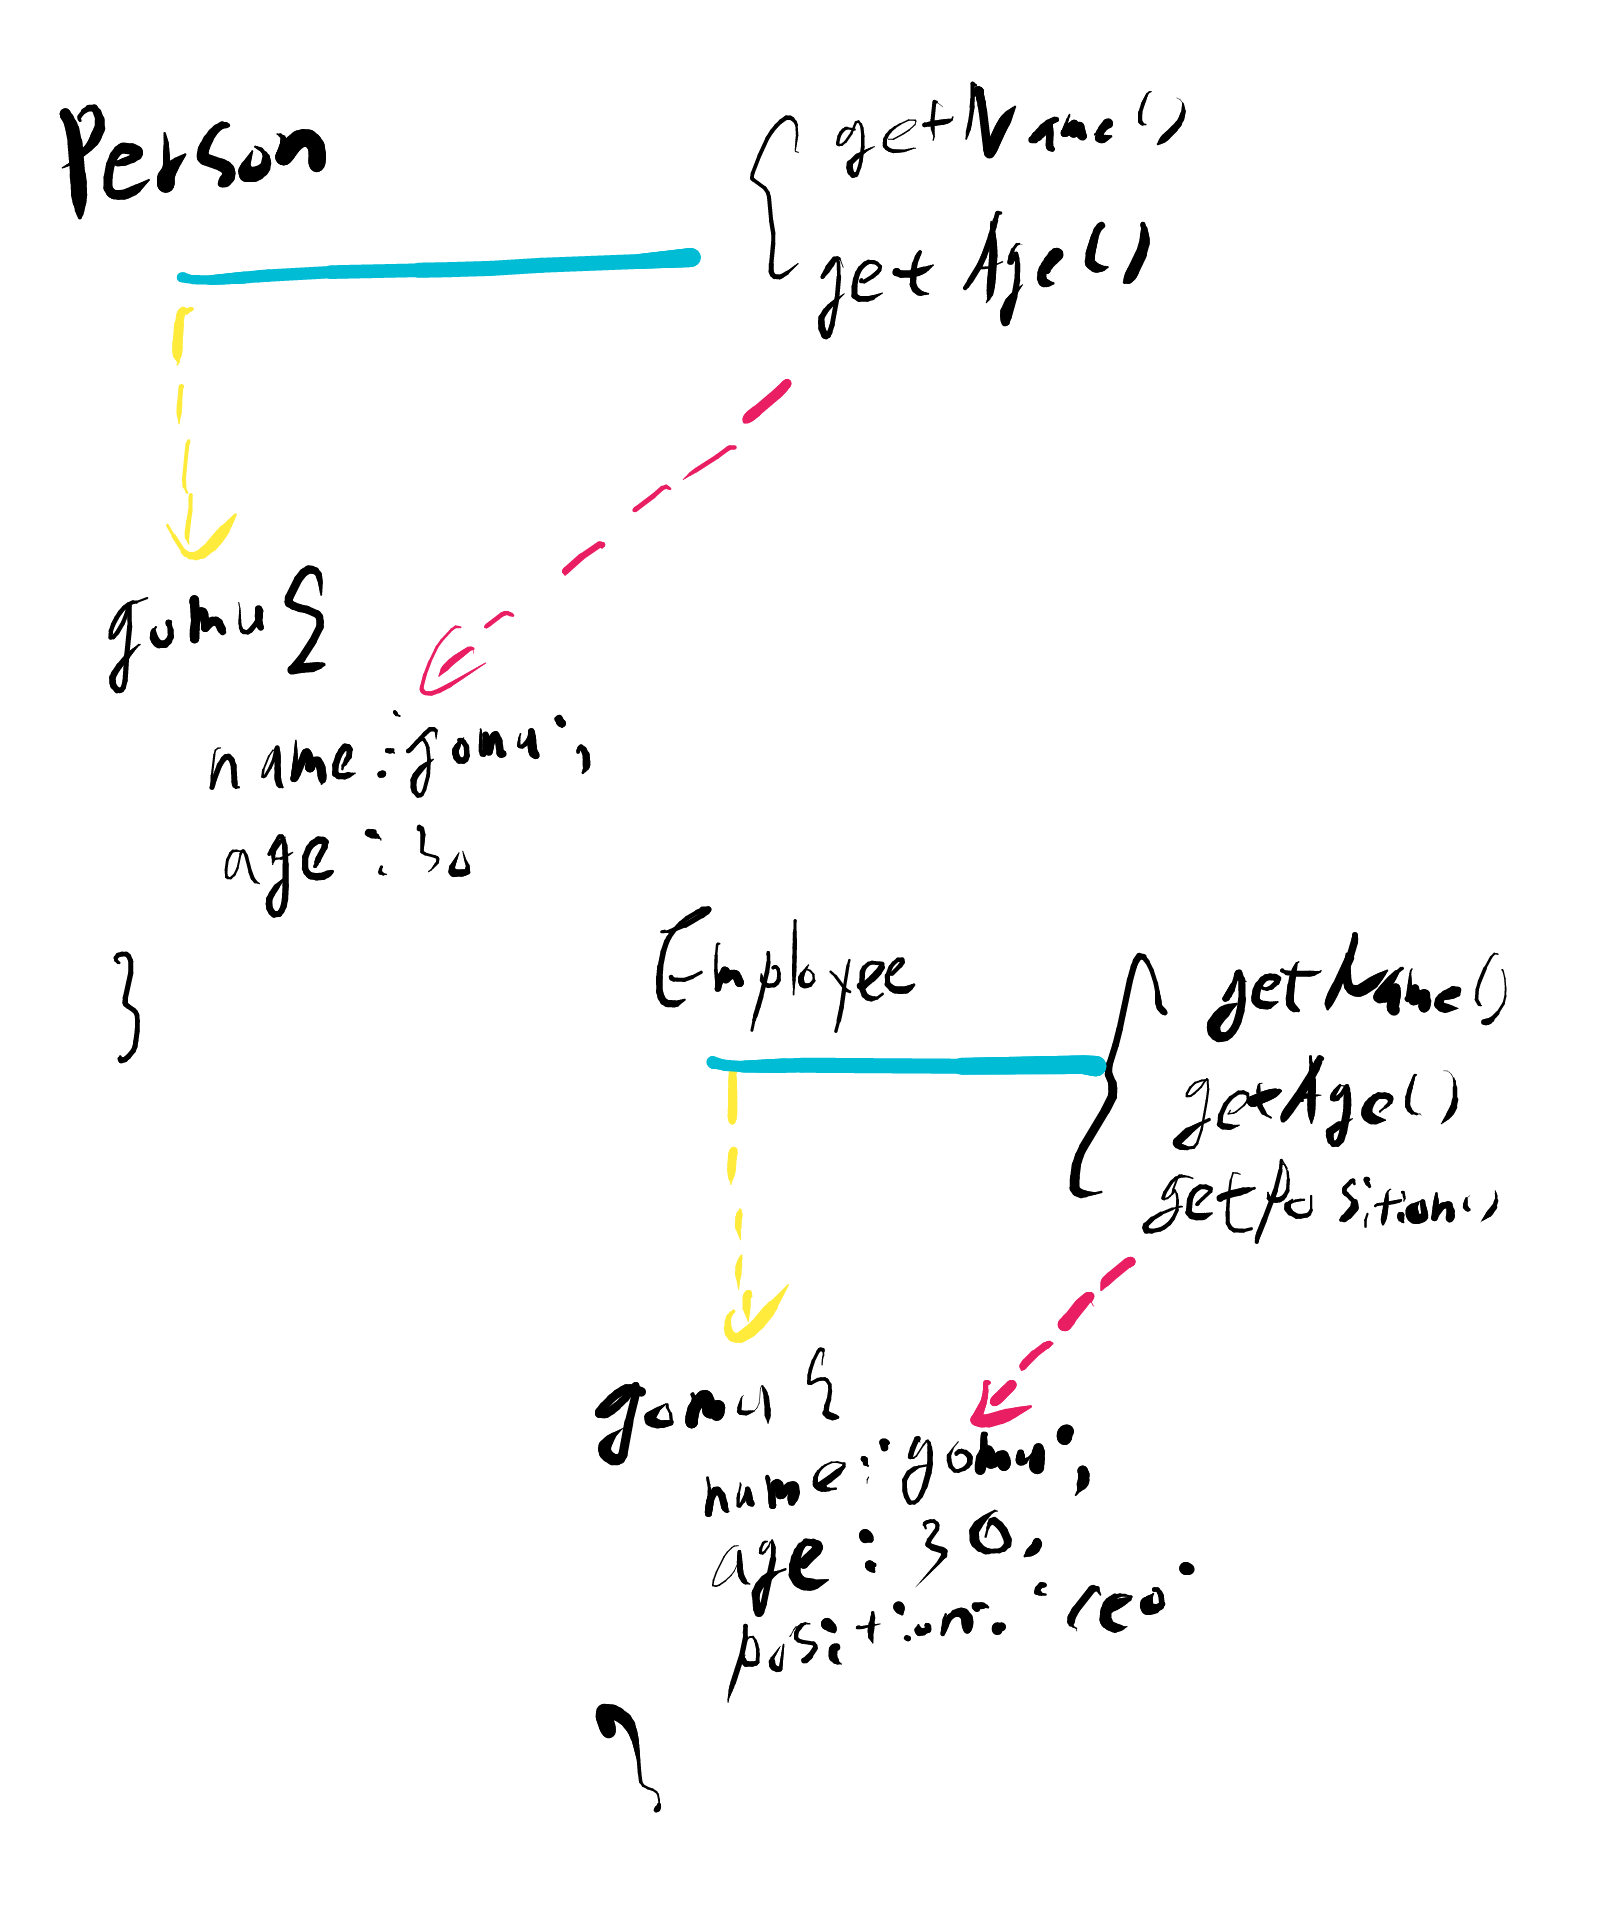 Person
{ getName()
getAge()
gomu {
name: 'gomu',
age: 30
}
Employee
{ getName()
getAge()
getPosition()
gomu {
name: 'gomu',
age: 30,
position: 'ceo'
}